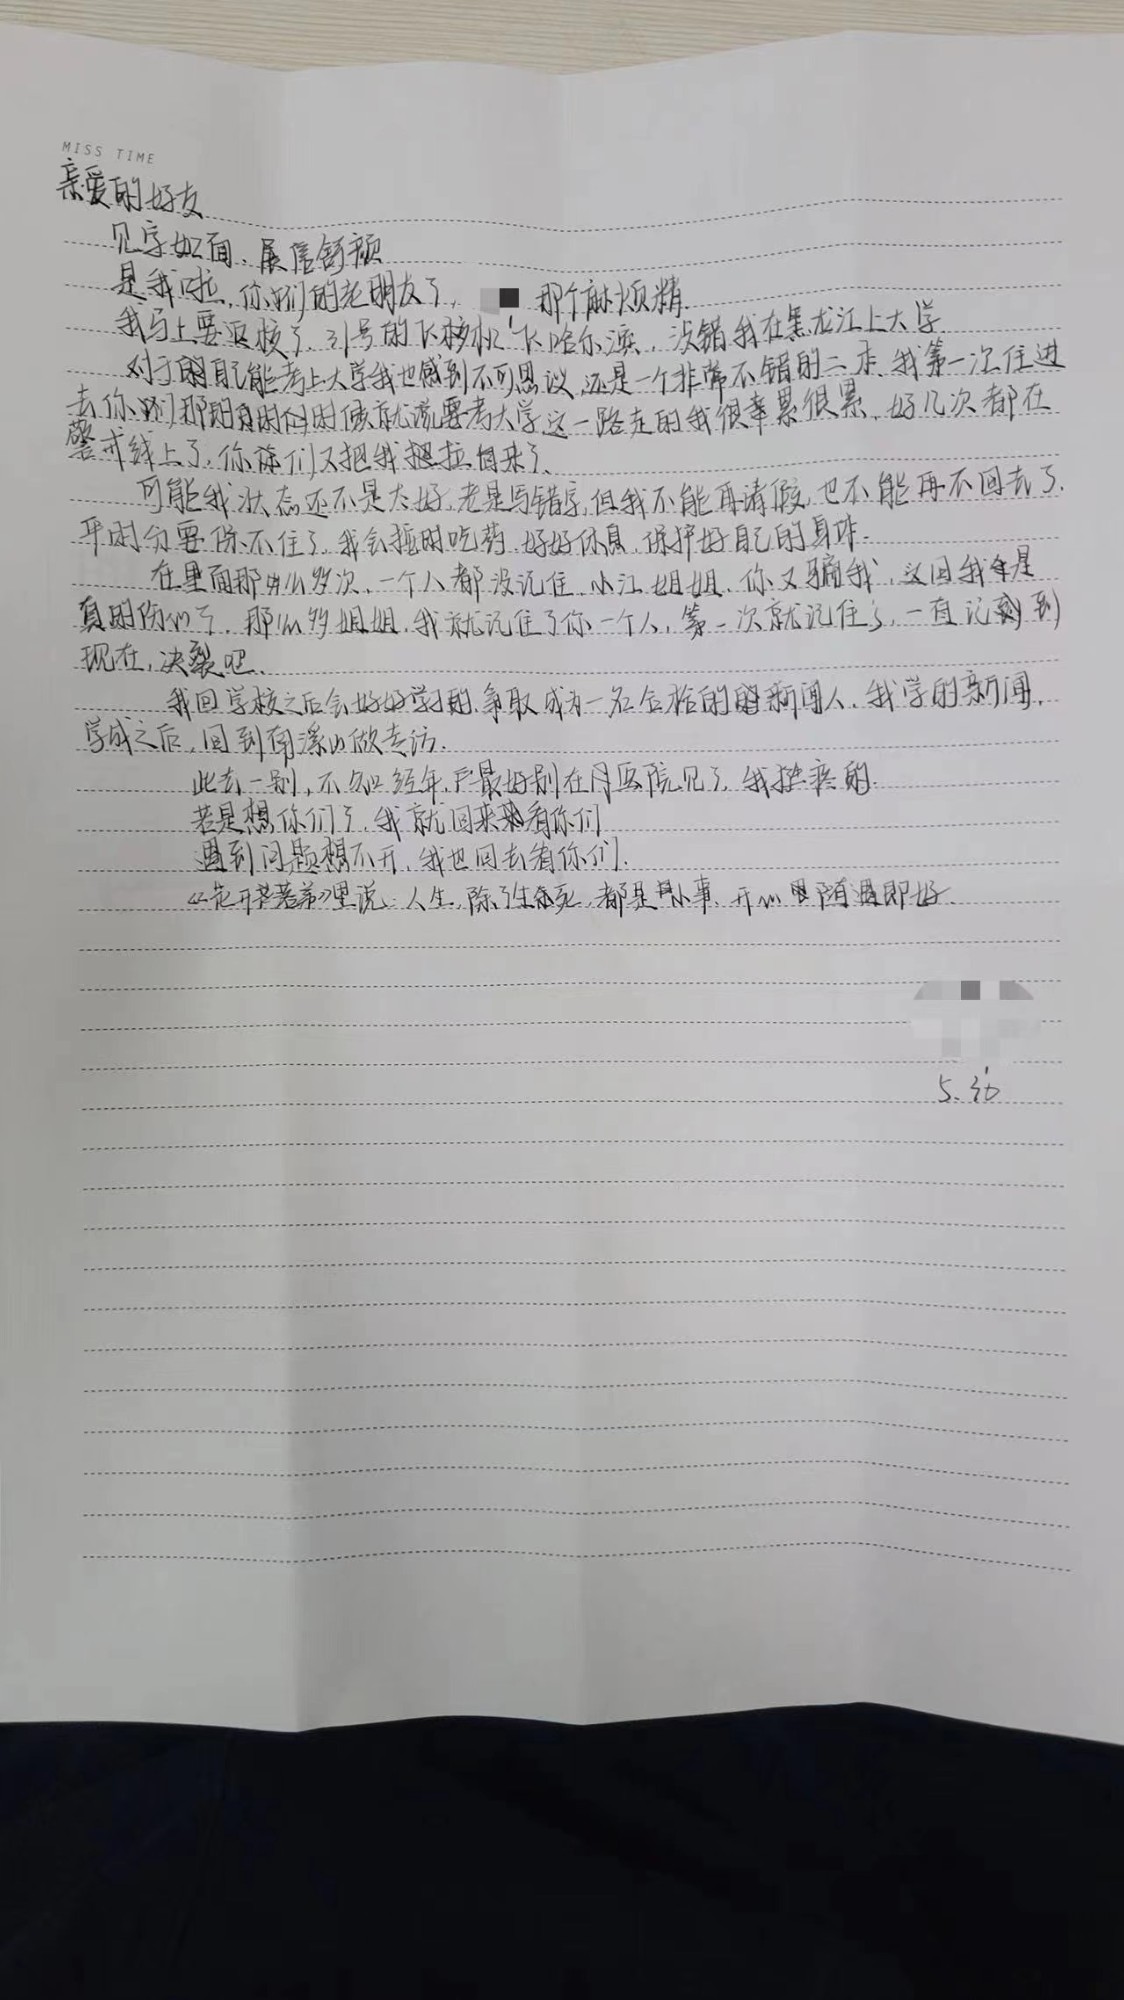 MISS TIME
亲爱的好友
见字如面、展信舒颜
是我啦,你们的老朋友了, 那个麻烦精.
我马上要返校了,31号的飞机飞哈尔滨,没错我在黑龙江上大学.
对于自己能考上大学我也感到不可思议,还是一个非常不错的二本,我第一次住进
去你们那的时候就说要考大学这一路走的我很辛累很累,好几次都在
警戒线上了,你们又把我拉回来了、
可能我状态还不是太好,老是写错字,但我不能再请假,也不能再不回去了.
开的分要保不住了,我会按时吃药,好好休息,保护好自己的身体.
在里面那么多次,一个人都没记住,小江姐姐,你又骗我,这回我是
真的伤心了,那么多姐姐,我就记住了你一个人,第一次就记住了,一直记到
现在,决裂吧.
我回学校之后会好好学习的,争取成为一名合格的新闻人,我学的新闻,
学成之后,回到南溪山做专访.
此去一别,不知经年,最好别在医院见了,我挺疼的.
若是想你们了,我就回来看你们
遇到问题想不开,我也回去看你们.
里说:人生,除了生死,都是小事,开心随遇即好.
5.30